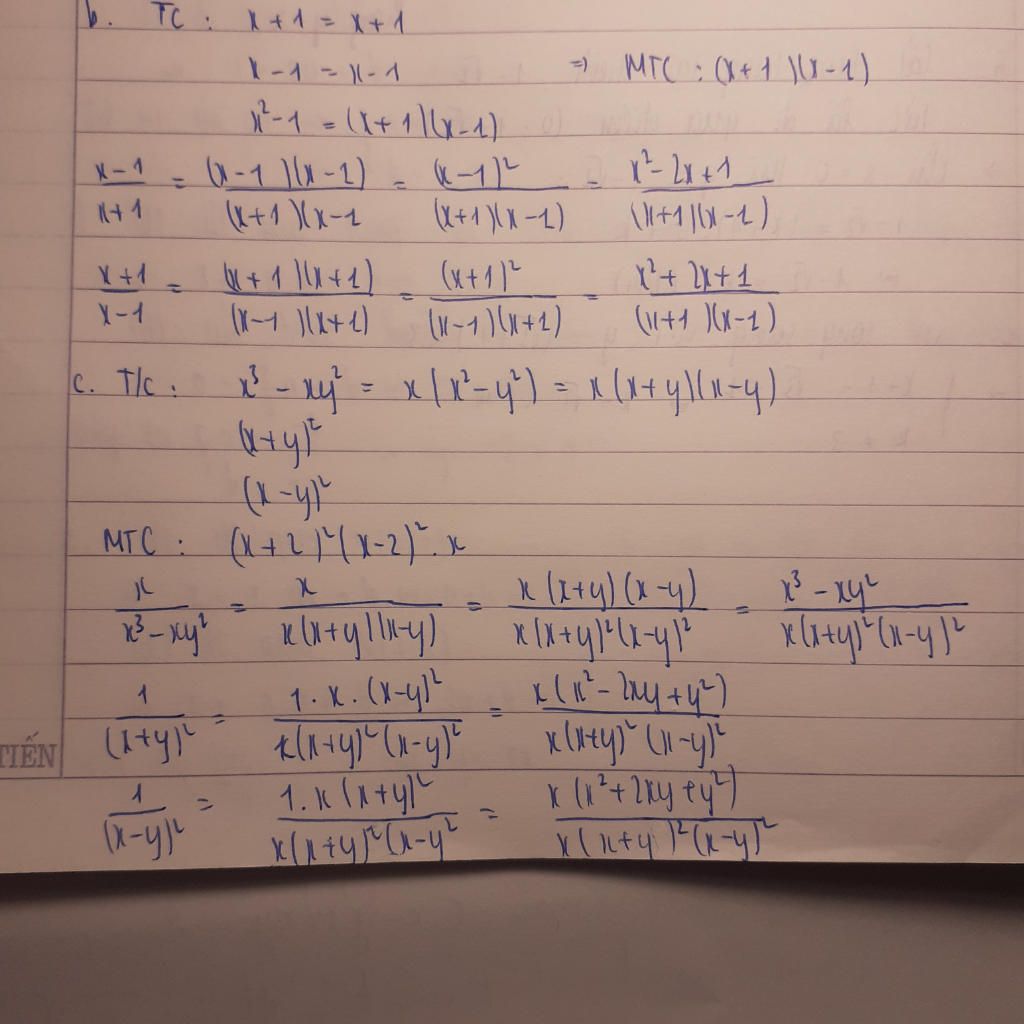 b. TC : x + 1 = x + 1
x - 1 = x - 1 => MTC : (x+1)(x-1)
x² - 1 = (x+1)(x-1)
x-1/x+1 = (x-1)(x-1)/(x+1)(x-1 = (x-1)²/(x+1)(x-1) = x²-2x+1/(x+1)(x-1)
x+1/x-1 = (x+1)(x+1)/(x-1)(x+1) = (x+1)²/(x-1)(x+1) = x²+2x+1/(x+1)(x-1)
c. T/c : x³ - xy² = x(x²-y²) = x(x+y)(x-y)
(x+y)²
(x-y)²
MTC : (x+2)²(x-2)².x
x/x³-xy² = x/x(x+y)(x-y) = x(x+y)(x-y)/x(x+y)²(x-y)² = x³-xy²/x(x+y)²(x-y)²
1/(x+y)² = 1.x.(x-y)²/x(x+y)²(x-y)² = x(x²-2xy+y²)/x(x+y)²(x-y)²
TIẾN
1/(x-y)² = 1.x(x+y)²/x(x+y)²(x-y² = x(x²+2xy+y²)/x(x+y)²(x-y)²